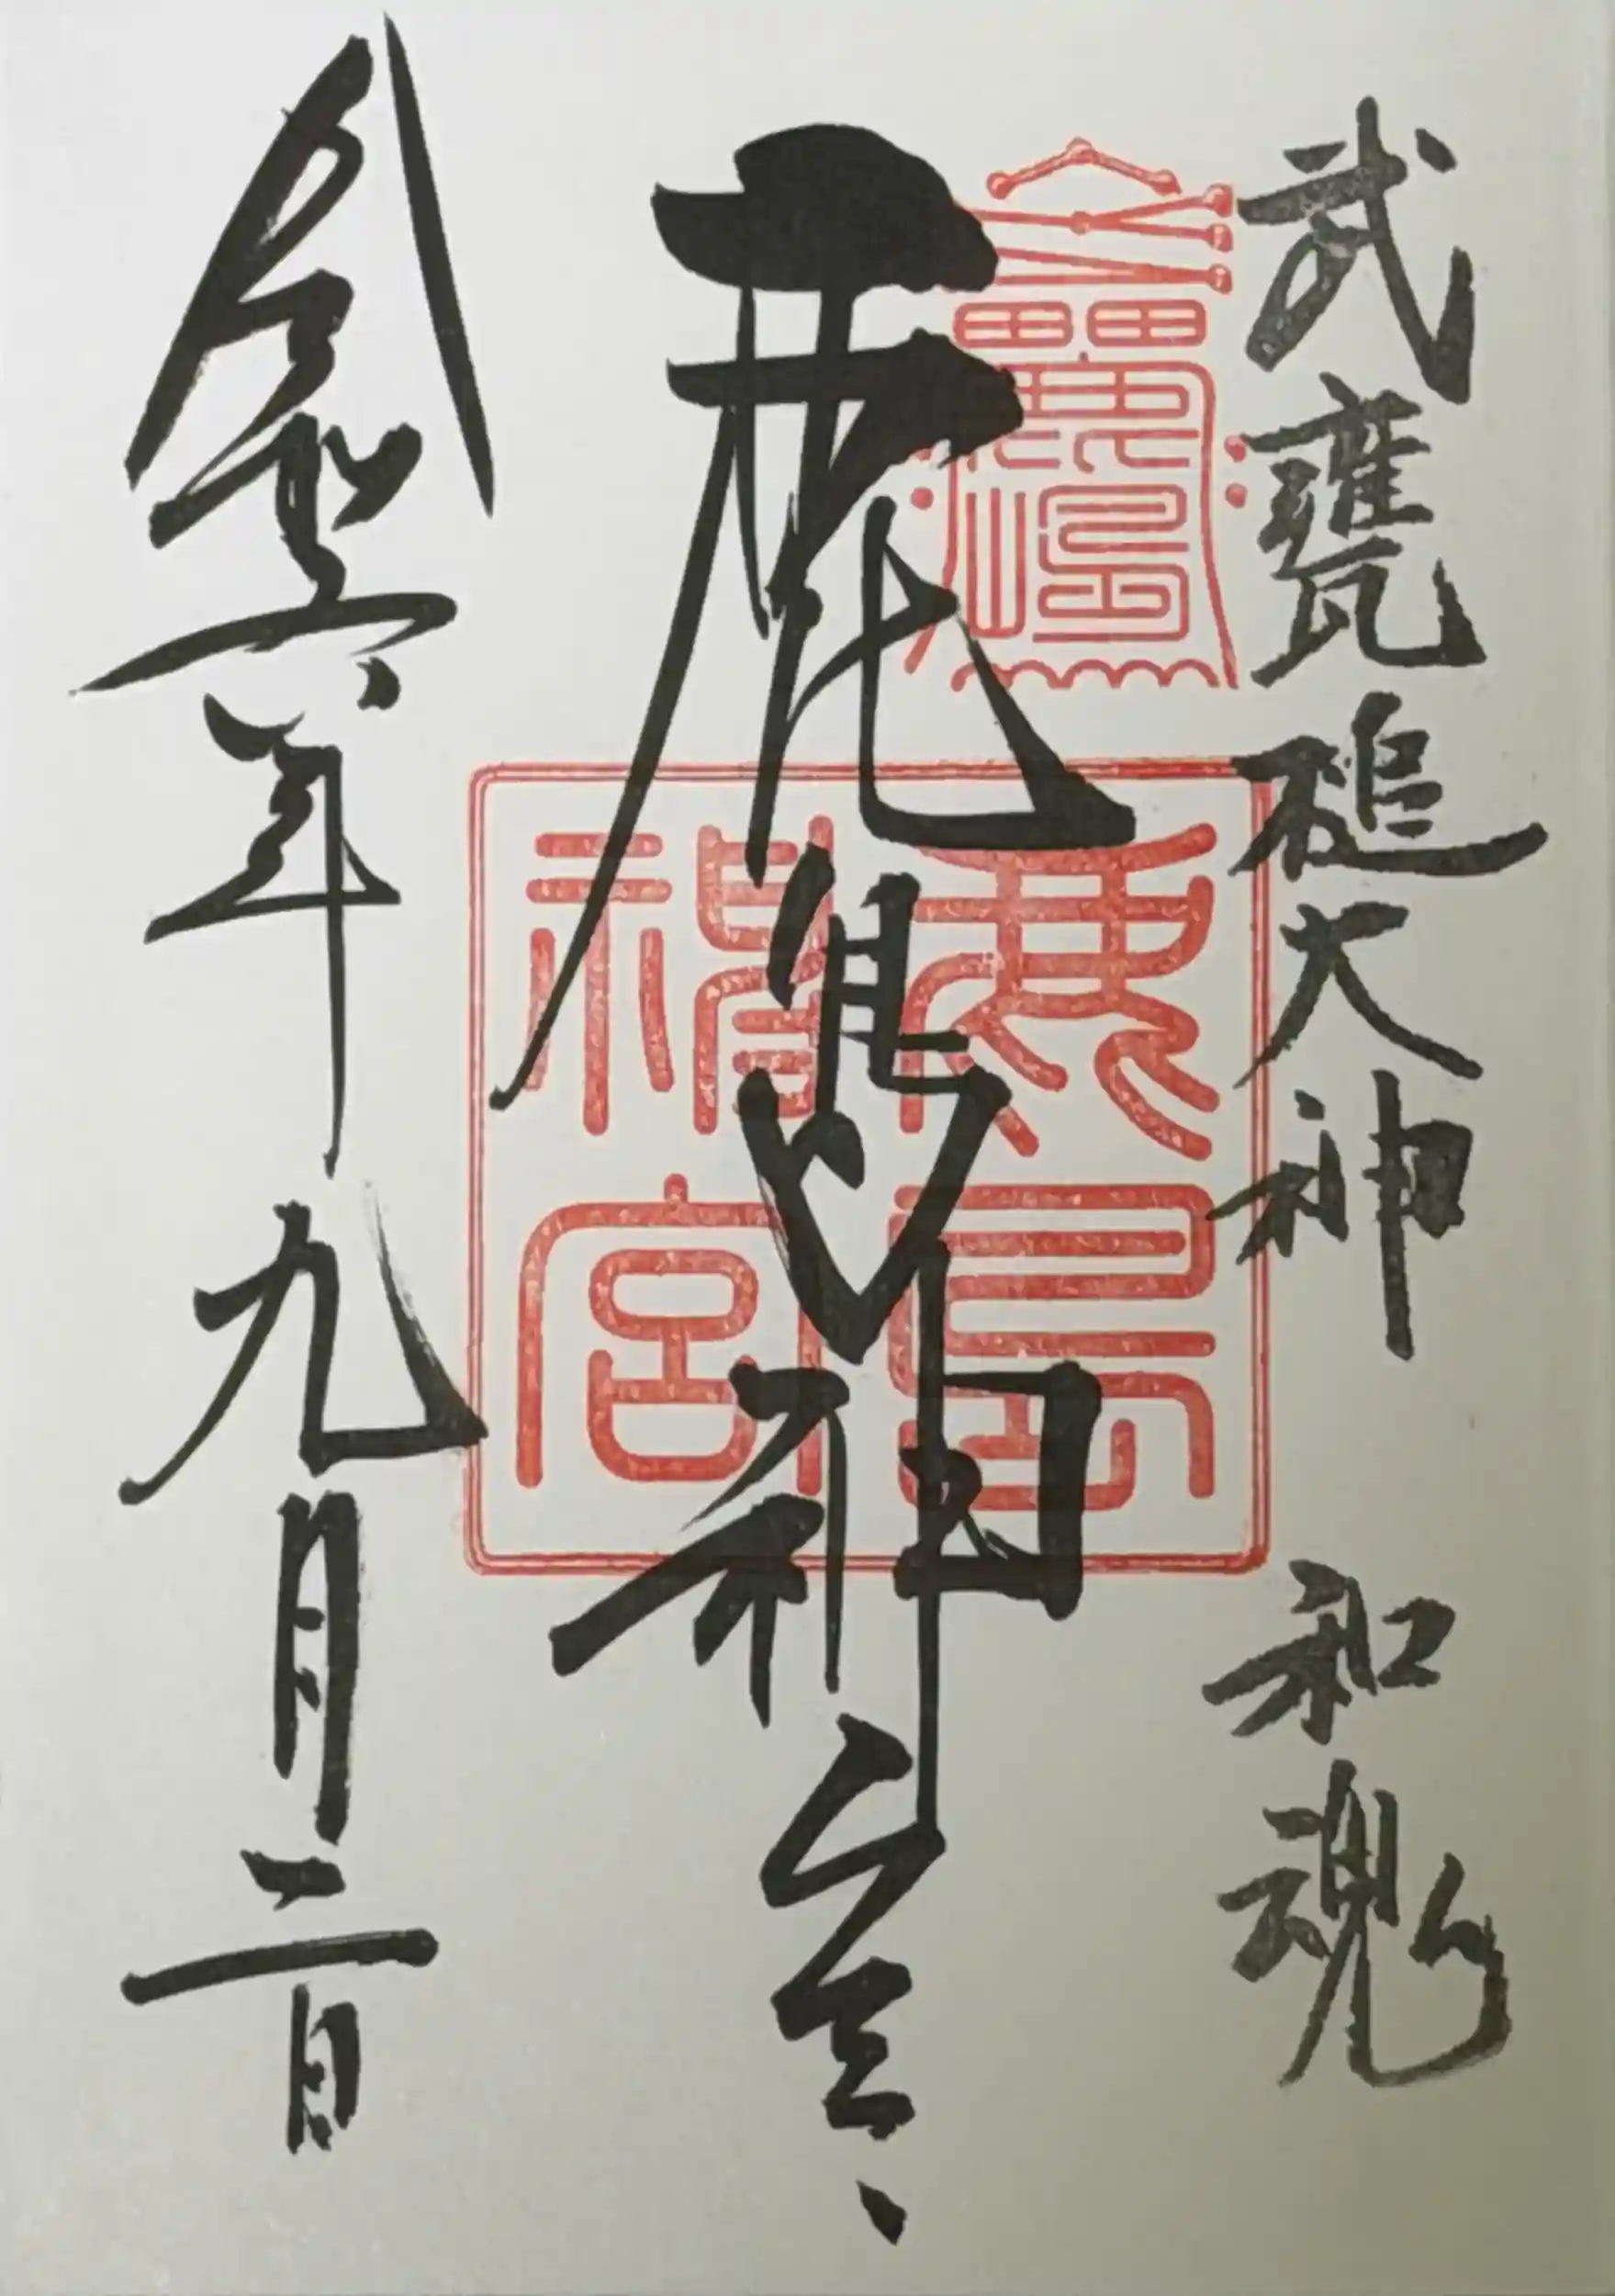 武甕槌大神 和魂
鹿島神宮
鹿島
神宮
令和六年九月二日